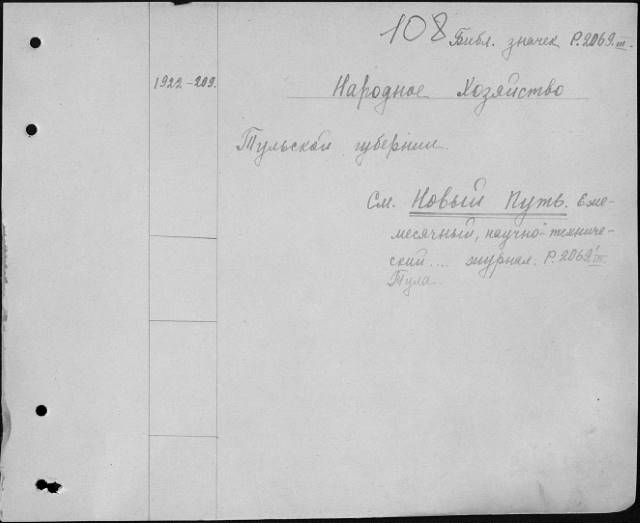 108 Библ. значек Р.2069.III.
1922-209.
Народное Хозяйство
Тульской губернии.
См. Новый Путь. Еже-
месячный, научно-техниче-
ский.... журнал. Р.2069.III.
Тула.